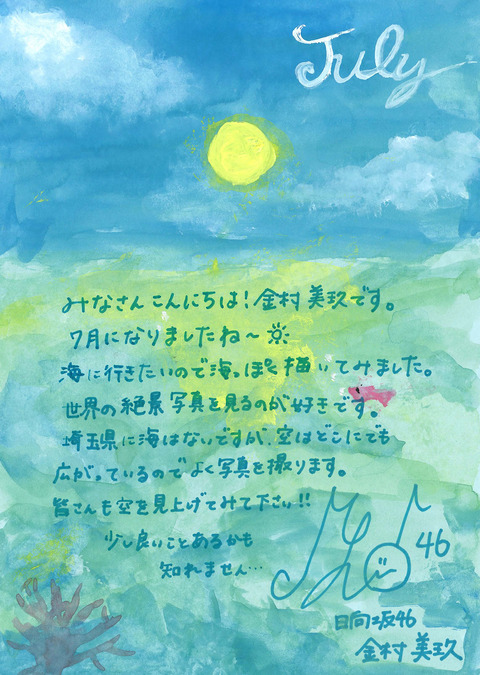 July
みなさんこんにちは!金村美玖です。
7月になりましたね〜☀
海に行きたいので海っぽく描いてみました。
世界の絶景写真を見るのが好きです。
埼玉県に海はないですが、空はどこにでも
広がっているのでよく写真を撮ります。
皆さんも空を見上げてみて下さい!!
少し良いことあるかも
知れません…
46
日向坂46
金村美玖